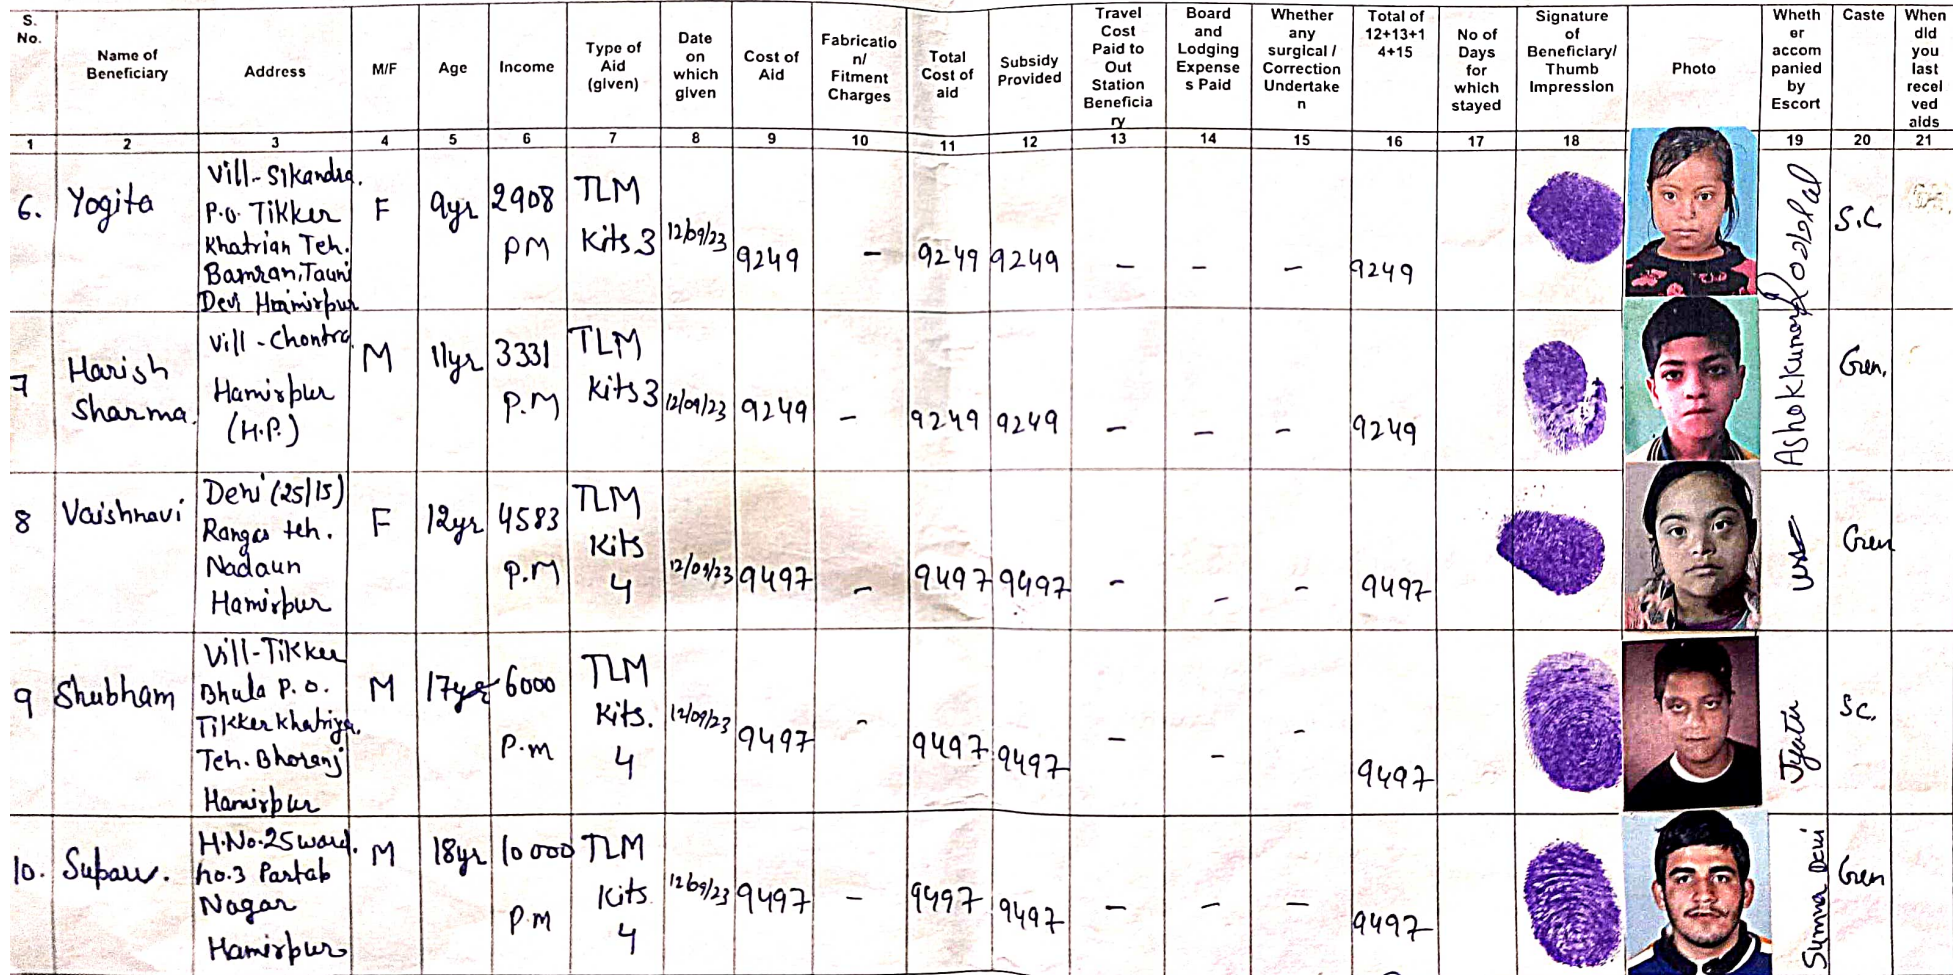 S. No.
Name of Beneficiary
Address
M/F
Age
Income
Type of Aid (given)
Date on which given
Cost of Aid
Fabricatio n/ Fitment Charges
Total Cost of aid
Subsidy Provided
Travel Cost Paid to Out Station Beneficia ry
Board and Lodging Expense s Paid
Whether any surgical / Correction Undertake n
Total of 12+13+1 4+15
No of Days for which stayed
Signature of Beneficiary/ Thumb Impression
Photo
Wheth er accom panied by Escort
Caste
When did you last recei ved aids
1 2 3 4 5 6 7 8 9 10 11 12 13 14 15 16 17 18 19 20 21
6. Yogita
Vill-Sikandra.
P.O. Tikker
Khatrian Teh.
Bamsan, Tauni
Devi Hamirpur
F 9yr 2908 PM
TLM Kits 3
12/09/23 9249 - 9249 9249 - - - 9249
S.C
7 Harish Sharma.
Vill - Chontra
Hamirpur
(H.P.)
M 11yr 3331 P.M
TLM Kits 3
12/09/23 9249 - 9249 9249 - - - 9249
Ashok Kumar
Gen.
8 Vaishnavi
(25/15)
Rangas teh.
Nadaun
Hamirpur
F 12yr 4583 P.M
TLM Kits 4
12/09/23 9497 - 9497 9497 - - - 9497
Gen
9 Shubham
Vill-Tikker
Bhula P.O.
Tikker Khatriya.
Teh. Bhoranj
Hamirpur
M 17yr 6000 P.m
TLM Kits. 4
12/09/23 9497 - 9497 9497 - - - 9497
Jyoti
SC.
10.
H.No.25 ward.
no.3 Partap
Nagar
Hamirpur
M 18yr 10000 P.M
TLM Kits 4
12/09/23 9497 - 9497 9497 - - - 9497
Sumna Devi
Gen